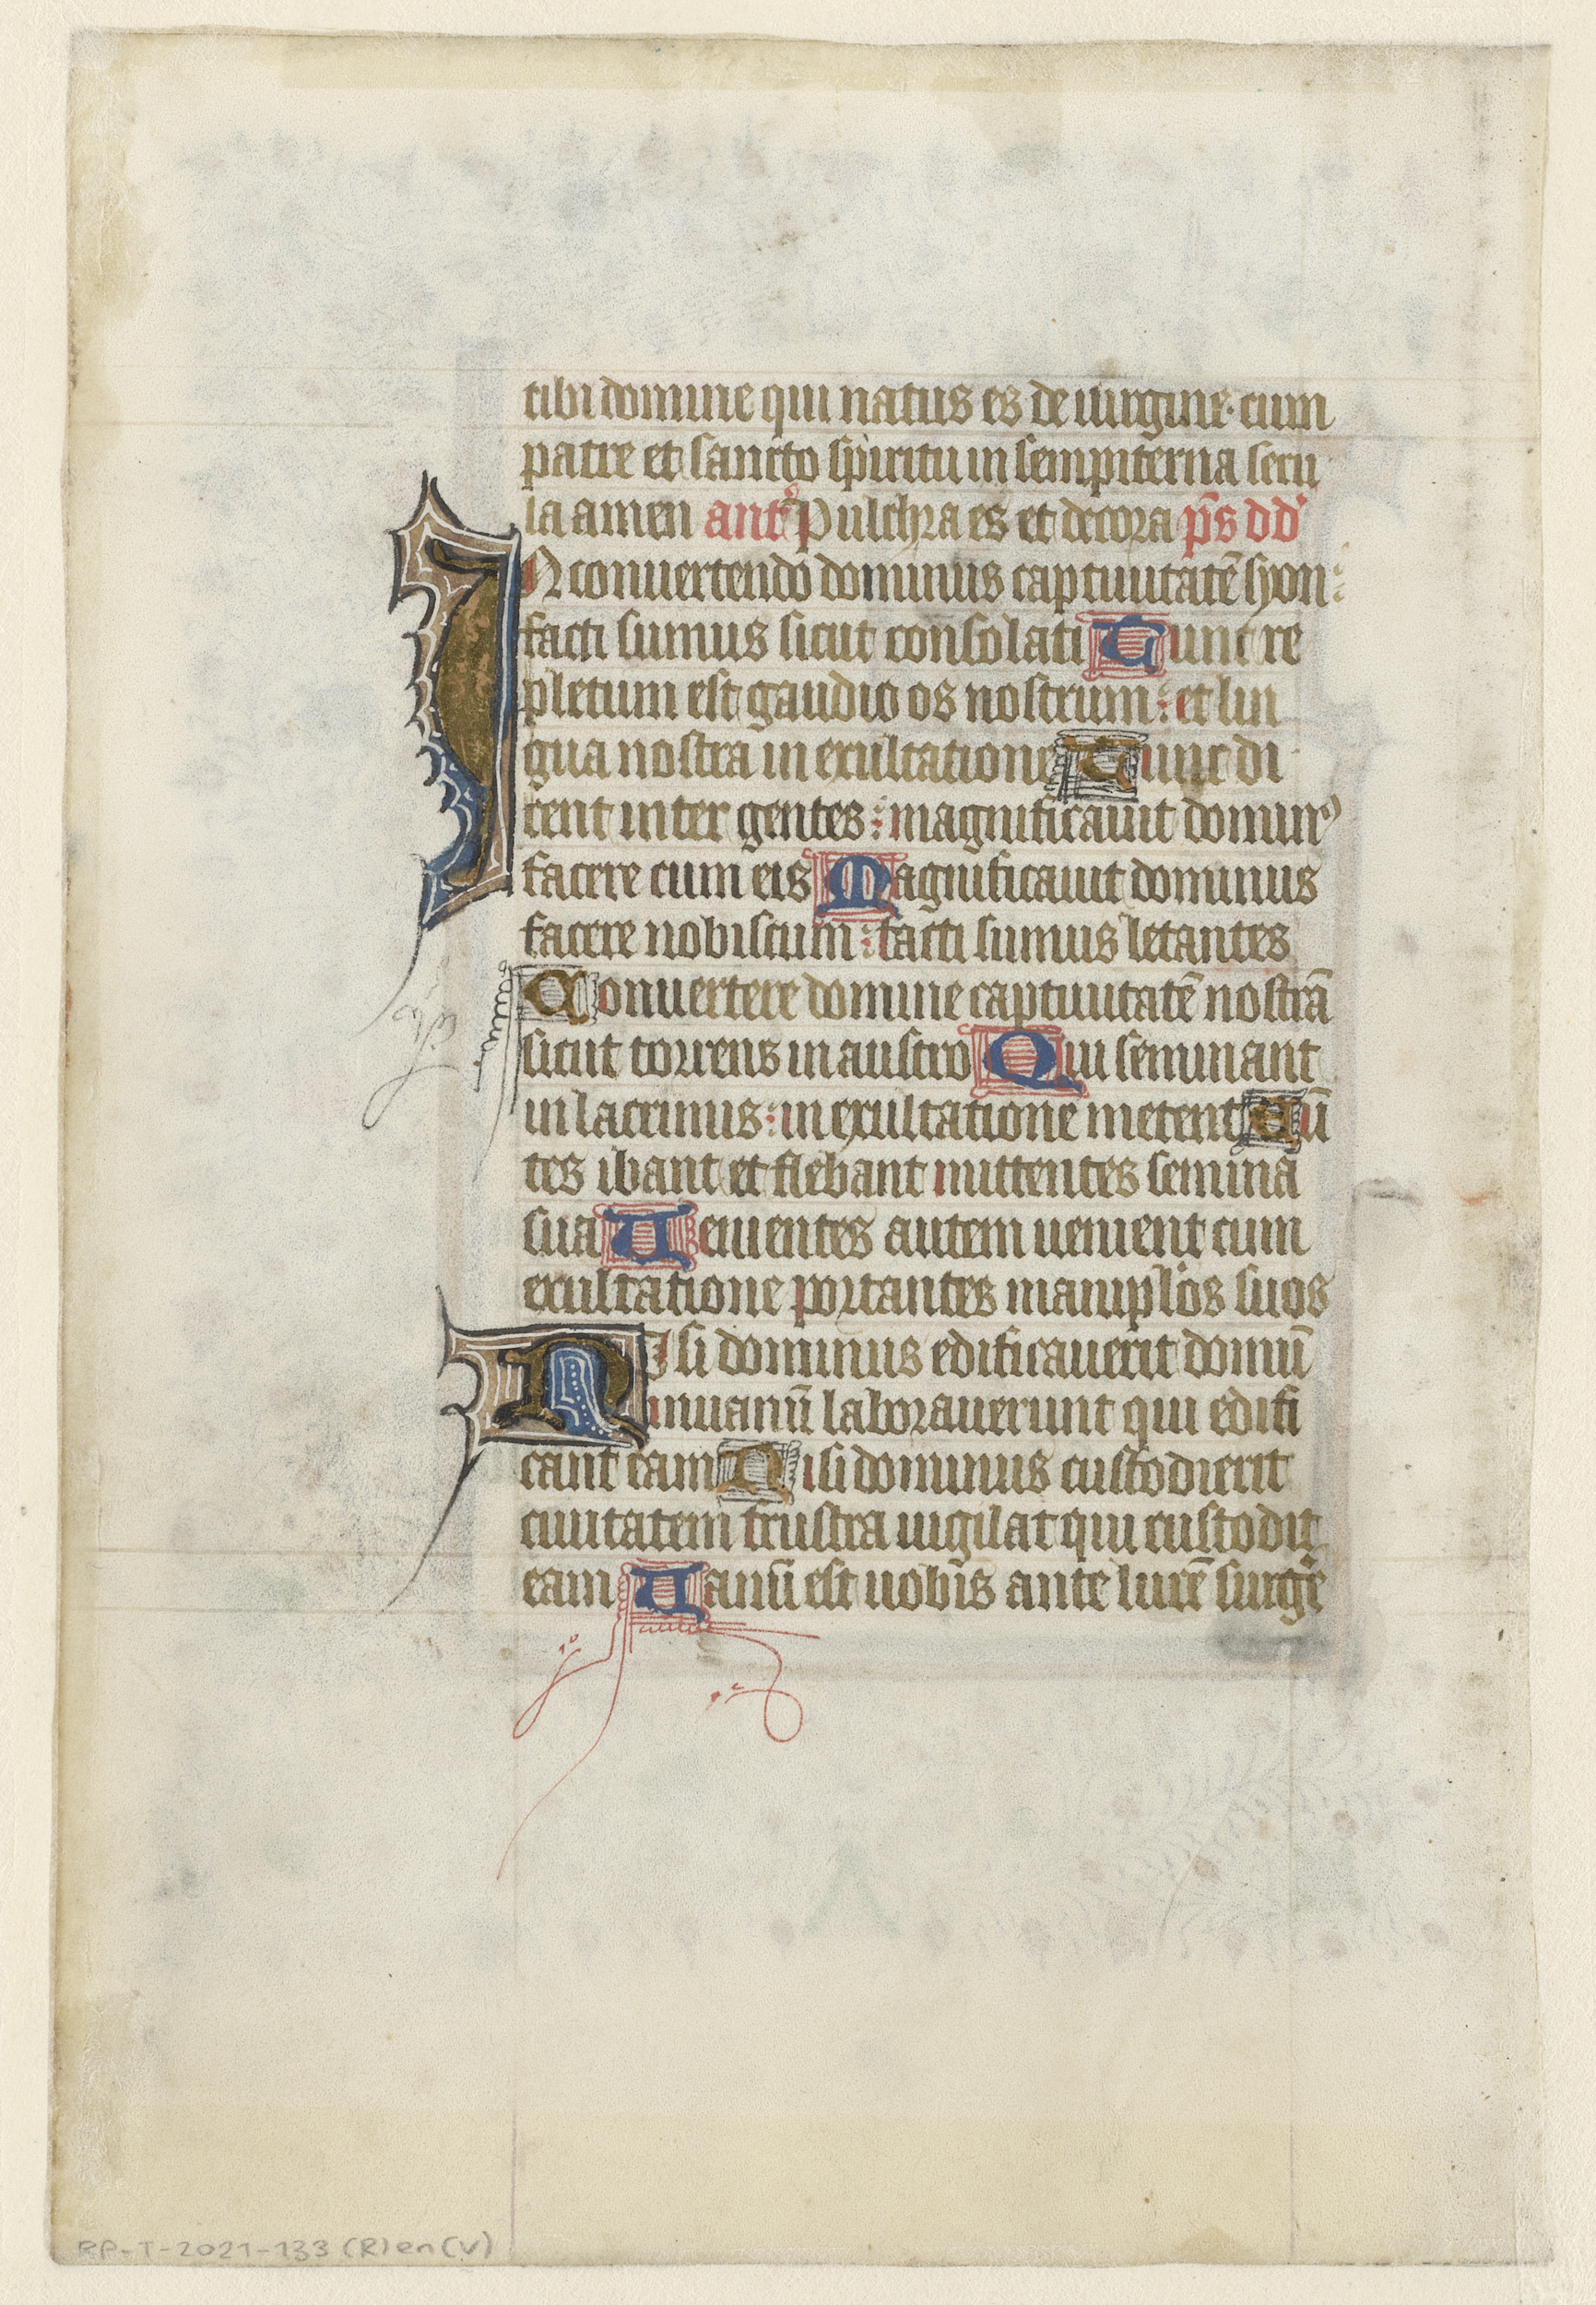 tibi domine qui natus es de uirgine· cum
patre et sancto spiritu in sempiterna secu
la amen ant᷎ Pulchra es et decora p̄s dd̾
IN conuertendo dominus captiuitatē syon:
facti sumus sicut consolati Tunc re
pletum est gaudio os nostrum: et lin
gua nostra in exultatione Tunc di
cent inter gentes: magnificauit domin᷒
facere cum eis Magnificauit dominus
facere nobiscum: facti sumus letantes
Conuertere domine captiuitatē nostrā
sicut torrens in austro Qui seminant
in lacrimis: in exultatione metent Eū
tes ibant et flebant mittentes semina
sua Uenientes autem uenient cum
exultatione portantes manip̾los suos
Nisi dominus edificauerit domū
inuanū laborauerunt qui edifi
cant eam Nisi dominus custodierit
ciuitatem frustra uigilat qui custodit
eam Uanū est uob̄is ante lucē surge᷑
RP-T-2021-133 (R) en (V)